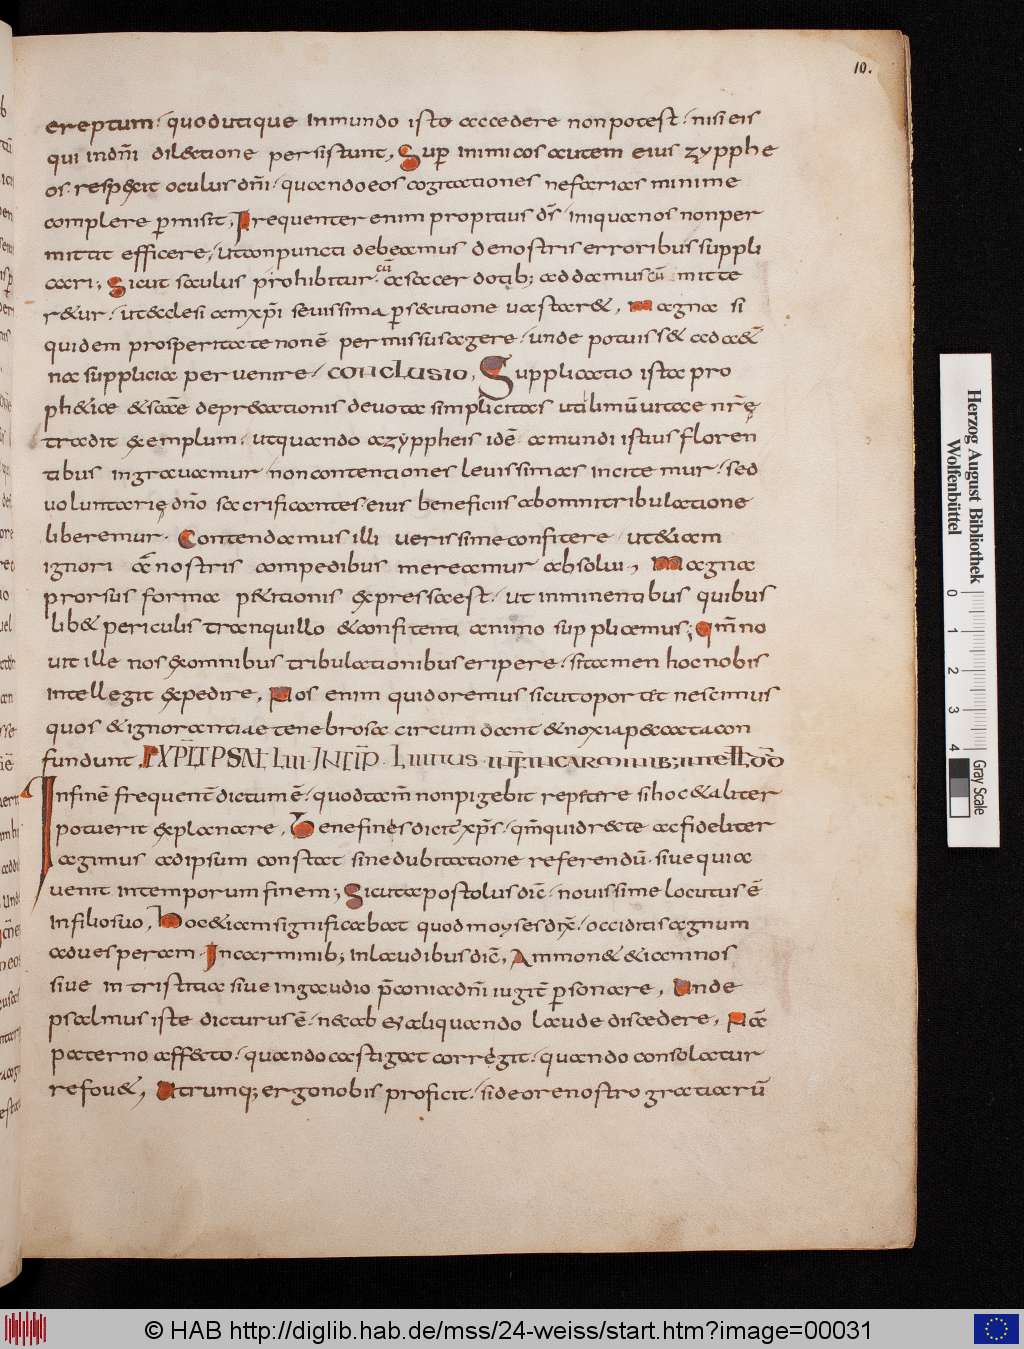 10.
ereptum. quod utique inmundo isto accedere non potest. nisi eis
qui in dñi dilectione persistunt, Sup inimicos autem eius zypphe
os. respexit oculus dñi. quando eos cogitationes nefarias minime
complere pmisit, Frequenter enim propitius dš. iniqua nos non per
mittit efficere, ut conpuncti debeamus de nostris erroribus suppli
cari; Sicut saculus prohibitur cũ a sacerdotib; ad damus cũ mitte
retur. ut ecclesia xp̃i seuissima psecutione uastaret, Magna si
quidem prosperitate non ẽ permissus agere. unde potuisset ad aet̃
na supplicia peruenire. CONCLUSIO, Supplicatio ista pro
phetice & sacẽ deprecationis deuota simplicitas utilimũ uitae nr̃ę
tradit exemplum. ut quando a zyppheis idẽ a mundi istius floren
tibus ingrauamur non contentiones leuissimas incitemur. sed
voluntarię dño sacrificantes. eius beneficiis ab omni tribulatione
liberemur. Contendamus illi uerissime confitere ut etiam
ignori a nostris compedibus mereamur absolui, Magna
prorsus forma petitionis expressa est. ut inminentibus quibus
libet periculis tranquillo & confitenti animo supplicemus; Qm̃ no
uit ille nos ex omnibus tribulationibus eripere. si tamen hoc nobis
intellegit expedire, Nos enim quid oremus sicut oportet nescimus
quos & ignorantiae tenebrosa circumdant & noxia peccata con
fundunt, EXPLIT PSAL LIII INCIP LIIIIUS INFIN IN CARMINIB; INTELL DD
In finẽ frequent̃ dictum ẽ. quod tam̃ non pigebit repetere si hoc & aliter
potuerit explanare, Bene finès dicit̃ xp̃s. qm̃ quidr&te ac fideliter
agimus ad ipsum constat sine dubitatione referendũ. siue quia
uenit in temporum finem; Sicut apostolus dic̃. nouissime locutus ẽ
in filio suo, Hoc etiam significabat quod moyses dix̃. occiditis agnum
ad uesperam. In carminib; in laudibus dic̃, Ammonet et iam nos
siue in tristitia siue in gaudio p̃conia dñi iugit̃ psonare, Unde
psalmus iste dicturus ẽ. nec ab ea aliquando laude discedere, Nã
paterno affectu. quando castigat corrègit. quando consolatur
refouet, Utrumq; ergo nobis proficit. si de ore nostro gratiarũ
Herzog August Bibliothek
Wolfenbüttel
0 1 2 3 4
Gray Scale
© HAB http://diglib.hab.de/mss/24-weiss/start.htm?image=00031